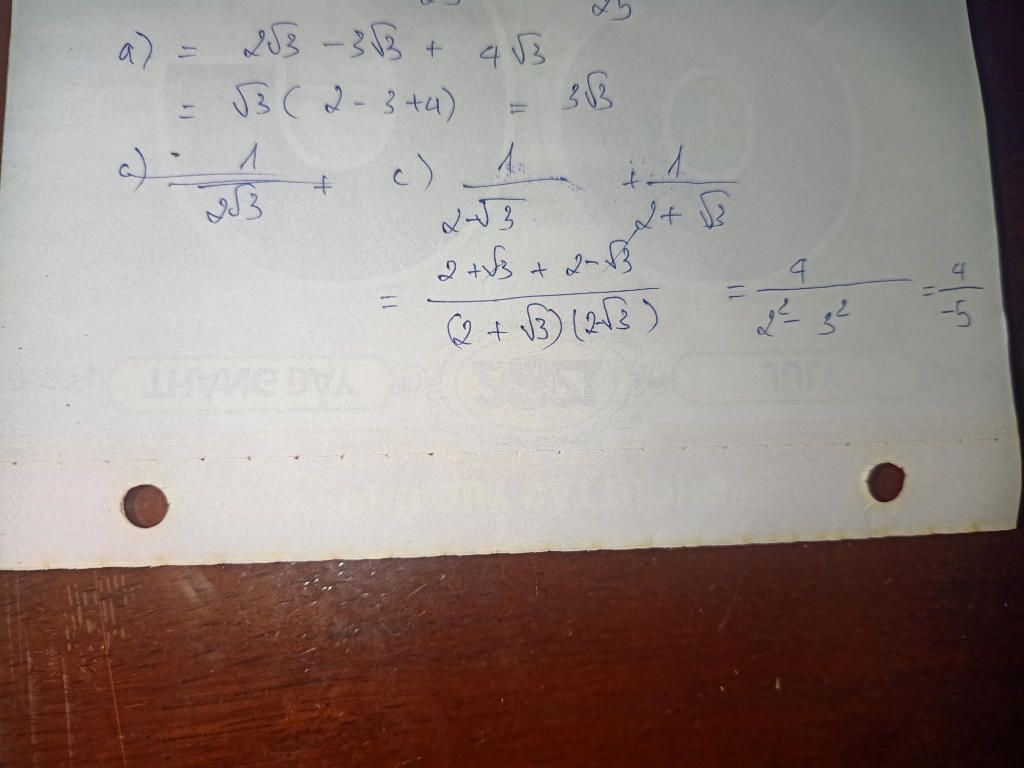 25 25
a) = 2√3 - 3√3 + 4√3
= √3 ( 2 - 3 + 4) = 3√3
c) 1/2√3 + c) 1/2-√3 + 1/2 + √3
= 2 + √3 + 2 - √3/(2 + √3)(2√3) = 4/2² - 3² = 4/-5
THÁNG BẢY JULY